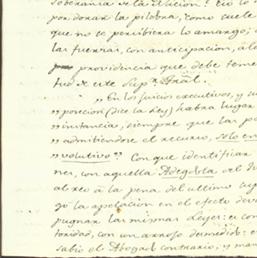 soberania de la Nacion? Eso lo
por dorar la pildora, como suele
que no se percibiera lo amargo; á
las fuerzas, con anticipacion, á l
providencia que debe teme
tud de este Sup.r Tral."
"En los juicios executivos, y su
posicion (dice la Ley) habra lugar
instancia, siempre que las p
admitiendose el recurso, solo en
volutivo" Con que identificar
nes, con aquella
al reo á la pena del ultimo sup
gó la apelacion en el efecto devo
pugnar las mismas Leyes: es con
toridad, con un arrojo desmedido: el
sabio el Abogado contrario; y man